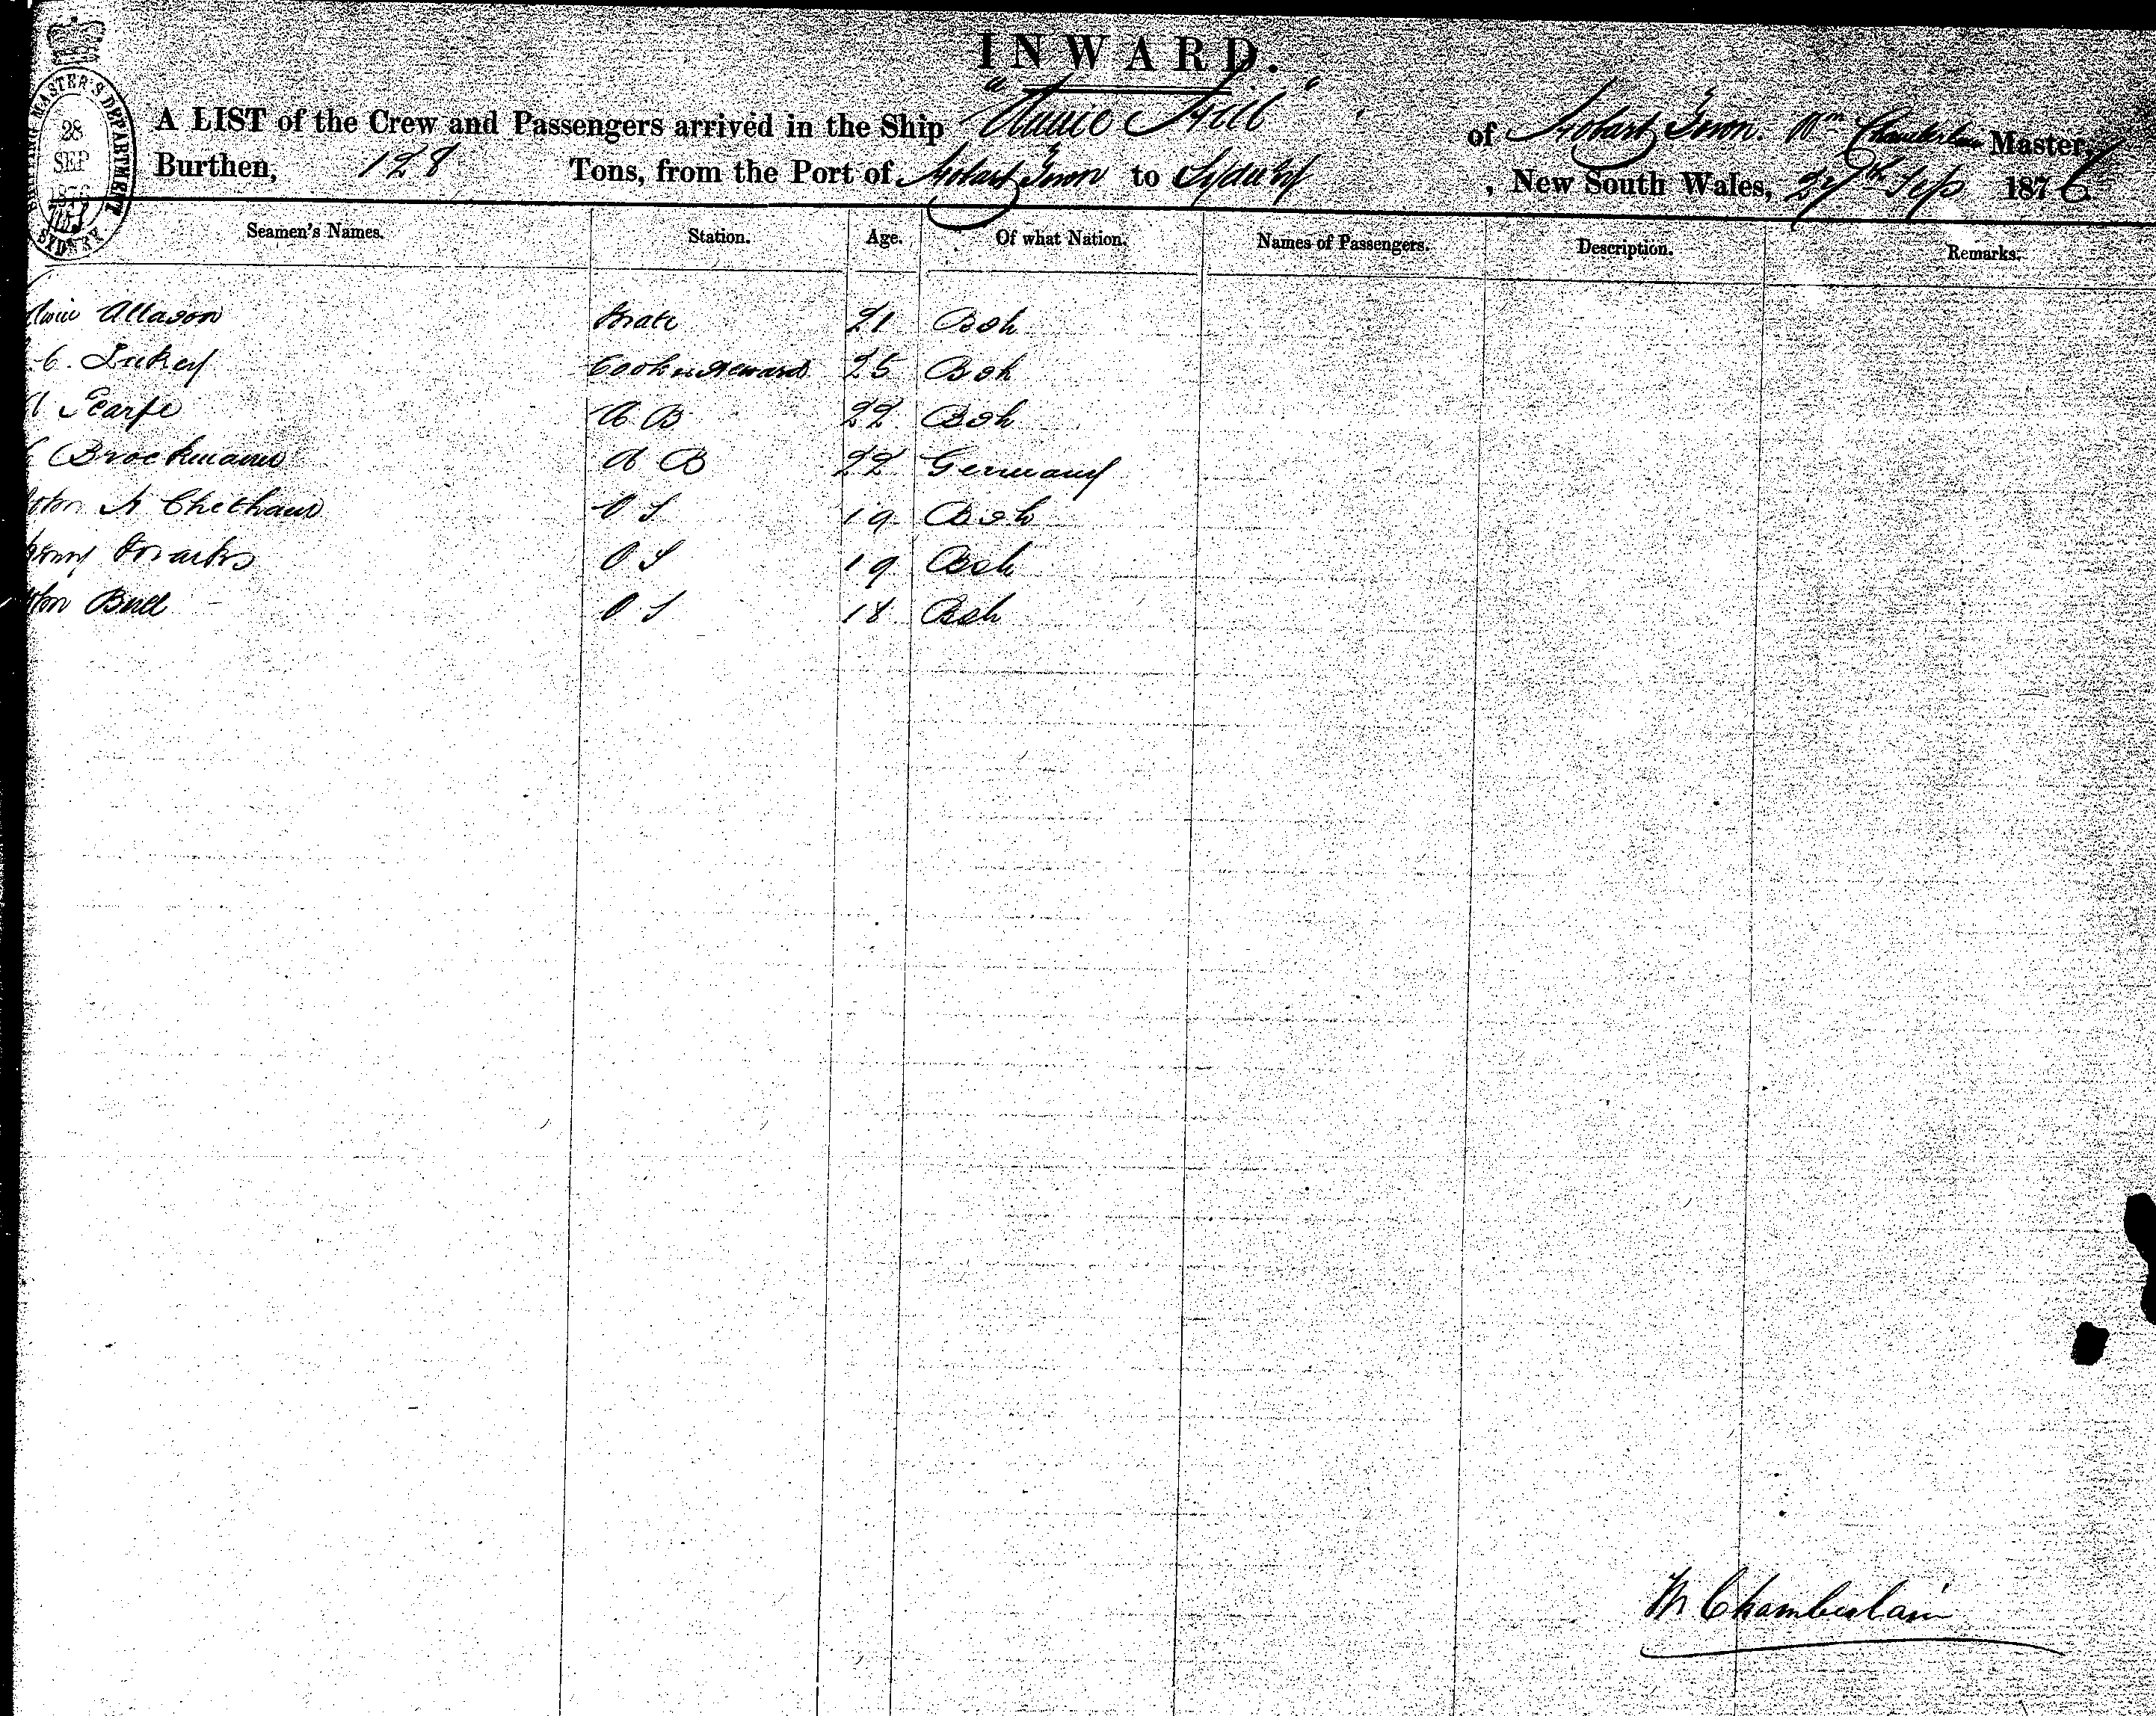 INWARD.
MASTER'S DEPARTMENT
28
SEP
1876
SYDNEY
A LIST of the Crew and Passengers arrived in the Ship of Hobart Town. Wm Chamberlain Master,
Burthen, 128 Tons, from the Port of Hobart Town to Sydney, New South Wales, 27th Sep 1876
Seamen's Names. Station. Age. Of what Nation. Names of Passengers. Description. Remarks.
Allason Mate 21 Bsh
C. Lukey Cook & Steward 25 Bsh
Scarfe A B 22 Bsh
Brockmann A B 22 Germany
A Chetham O S 19 Bsh
Marks O S 19 Bsh
Bull O S 18 Bsh
Wm Chamberlain